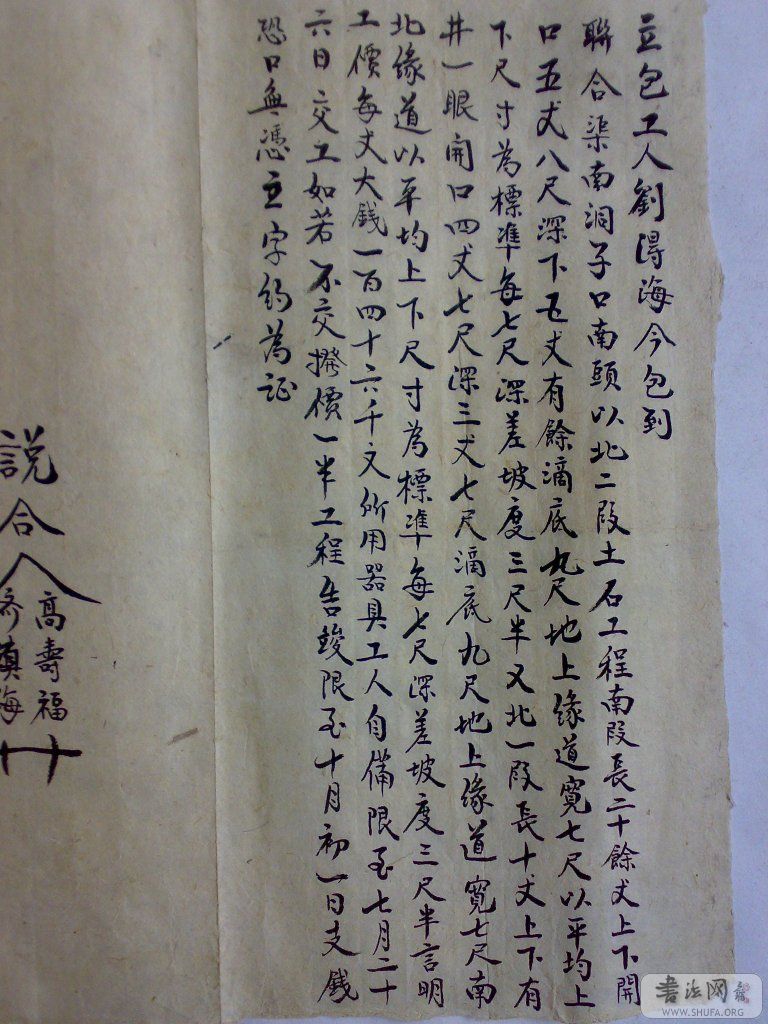 立包工人劉得海今包到
聯合渠南洞子口南頭以北二段土石工程南段長二十餘丈上下開
口五丈八尺深下五丈有餘滴底九尺地上緣道寬七尺以平均上
下尺寸為標準每七尺深差坡度三尺半又北一段長十丈上下有
井一眼開口四丈七尺深三丈七尺滴底九尺地上緣道寬七尺南
北緣道以平均上下尺寸為標準每七尺深差坡度三尺半言明
工價每丈大錢一百四十六千文所用器具工人自備限至七月二十
六日交工如若不交撥價一半工程告竣限至十月初一日支錢
恐口無憑立字約為証
說合人
高壽福
齊鎮海
書法网
WWW.SHUFA.ORG